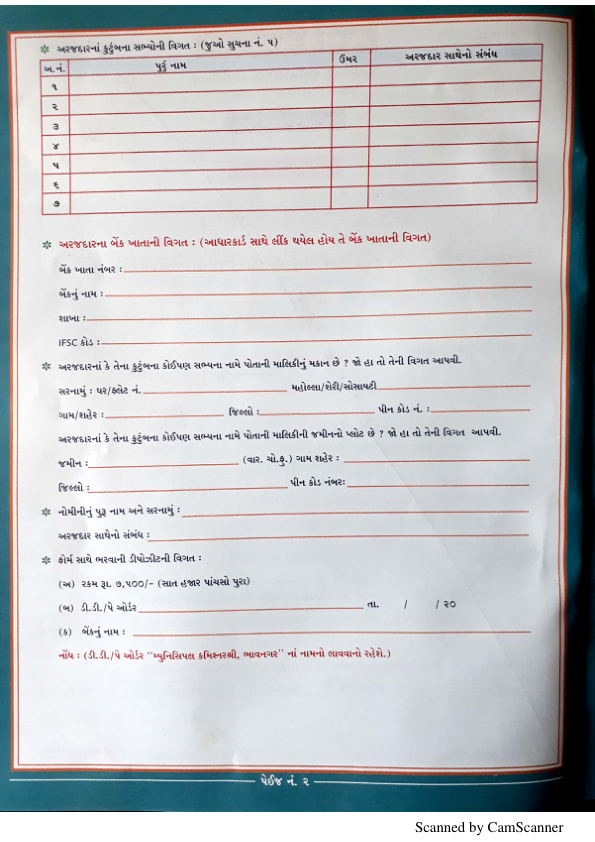 ❇ અરજદારનાં કુટુંબના સભ્યોની વિગત : (જુઓ સુચના નં. ૫)
અ.નં. પુરૂં નામ ઉંમર અરજદાર સાથેનો સંબંધ
૧
૨
૩
૪
૫
૬
૭
❇ અરજદારના બેંક ખાતાની વિગત : (આધારકાર્ડ સાથે લીંક થયેલ હોય તે બેંક ખાતાની વિગત)
બેંક ખાતા નંબર :
બેંકનું નામ :
શાખા :
IFSC કોડ :
❇ અરજદારનાં કે તેના કુટુંબના કોઈપણ સભ્યના નામે પોતાની માલિકીનું મકાન છે ? જો હા તો તેની વિગત આપવી.
સરનામું : ઘર/ફ્લેટ નં. મહોલ્લા/શેરી/સોસાયટી
ગામ/શહેર : જિલ્લો : પીન કોડ નં. :
અરજદારનાં કે તેના કુટુંબના કોઈપણ સભ્યના નામે પોતાની માલિકીની જમીનનો પ્લોટ છે ? જો હા તો તેની વિગત આપવી.
જમીન : (વાર. ચો.ફુ.) ગામ શહેર :
જિલ્લો : પીન કોડ નંબર:
❇ નોમીનીનું પુરૂ નામ અને સરનામું :
અરજદાર સાથેનો સંબંધ :
❇ ફોર્મ સાથે ભરવાની ડીપોઝીટની વિગત :
(અ) રકમ રૂા. ૭,૫૦૦/- (સાત હજાર પાંચસો પુરા)
(બ) ડી.ડી./પે ઓર્ડર તા. / / ૨૦
(ક) બેંકનું નામ :
નોંધ : (ડી.ડી./પે ઓર્ડર "મ્યુનિસિપલ કમિશ્નરશ્રી, ભાવનગર" નાં નામનો લાવવાનો રહેશે.)
પેઈજ નં. ૨
Scanned by CamScanner